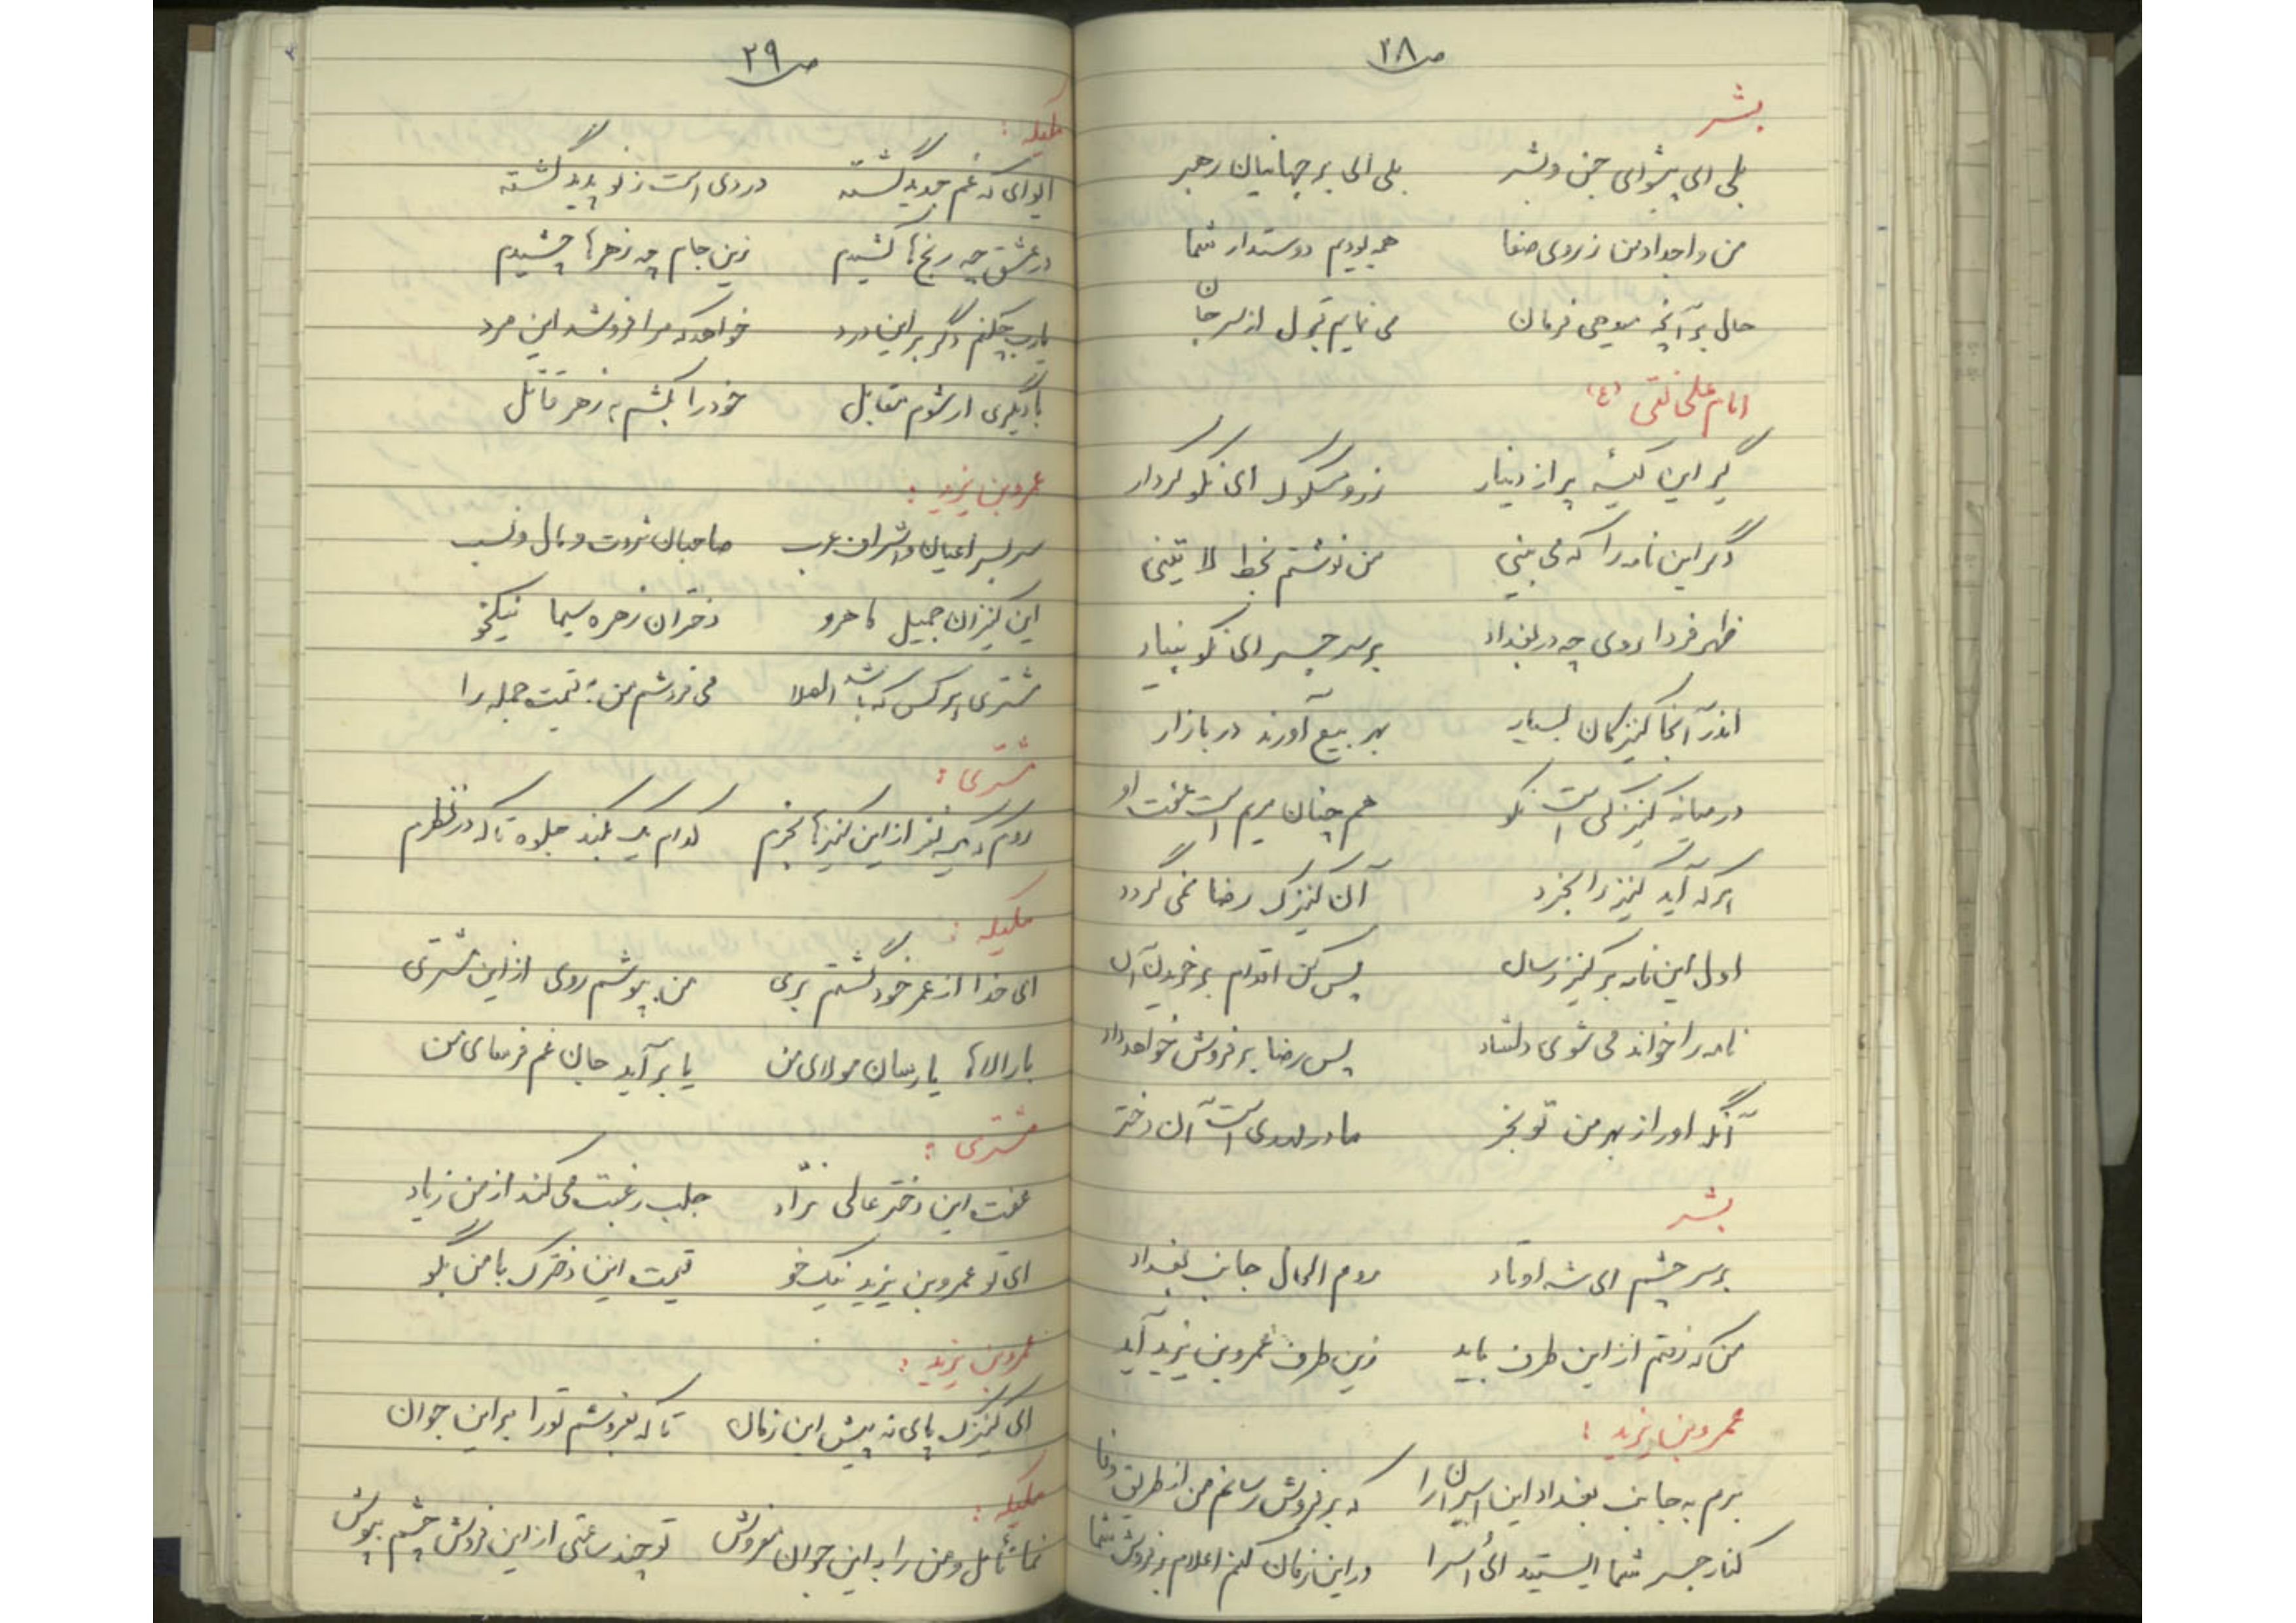 ص ۲۸
بشر
بلی ای پیشوای جن و بشر بلی ای بر جهانیان رهبر
من و اجدادمن ز روی صفا همه بودیم دوستدار شما
حال بر آنچه میدهی فرمان می نمایم قبول از سر جان
امام علی نقی (ع)
گیر این کیسه پر از دینار زر و مسکوک ای نکو کردار
دگر این نامه را که می بینی من نوشتم بخط لا تینی
ظهر فردا روی چه در بغداد بر سر جسر ای نکو بنیاد
اندر آنجا کنیزکان بسیار بهر بیع آورند در بازار
در میانه کنیزکی است نکو هم چنان مریم است عفت او
هر که آید کنیز را بخرد آن کنیزک رضا نمی گردد
اول این نامه بر کنیز رسان پس کن اقدام بر خریدن آن
نامه را خواند می شوی دلشاد پس رضا بر فروش خواهد داد
آنگه او را از بهر من تو بخر مادر مهدی است آن دختر
بشر
بر سر چشم ای شه اوتاد روم الحال جانب بغداد
من که رفتم از این طرف باید زین طرف عمروبن یزید آید
عمروبن یزید :
برم به جانب بغداد این اسیران را که بر فروش رسانم من از طریق وفا
کنار جسر شما ایستید ای اُسرا در این زمان کنم اعلام بر فروش شما
ص ۲۹
ملیکه :
ایوای که غم جدید گشته دردی است ز نو پدید گشته
در عشق چه رنج ها کشیدم زین جام چه زهرها چشیدم
یارب چکنم دگر بر این درد خواهد که مرا فروشد این مرد
با دیگری ار شوم مقابل خود را بکشم به زهر قاتل
عمروبن یزید :
سر بسر اعیان و اشراف عرب صاحبان ثروت و مال و نسب
این کنیزان جمیل ماهرو دختران زهره سیما نیکخو
مشتری هر کس که باشد الصلا می فروشم من به قیمت جمله را
مشتری :
روم که یک نفر از این کنیزها بخرم کدام یک بکند جلوه تا که در نظرم
ملیکه :
ای خدا از عمر خود گشتم بری من بپوشم روی از این مشتری
بارالاها یا رسان مولای من یا بر آید جان غم فرسای من
مشتری :
عفت این دختر عالی نژاد جلب رغبت می کند از من زیاد
ای تو عمروبن یزید نیک خو قیمت این دخترک با من بگو
عمروبن یزید :
ای کنیزک پای نه پیش این زمان تا که بفروشم تو را بر این جوان
ملیکه :
نما تأمل و من را به این جوان مفروش تو چند ساعتی از این فروش چشم بپوش